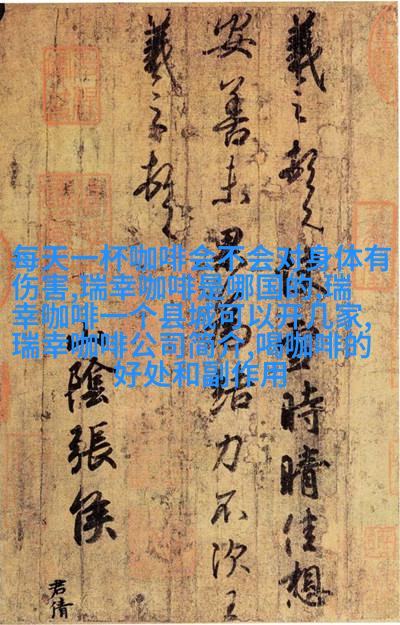 每天一杯咖啡会不会对身体有
伤害,瑞幸咖啡是哪国的,瑞
幸咖啡一个县城可以开几家,
瑞幸咖啡公司简介,喝咖啡的
好处和副作用
羲之頓首快雪時晴佳想
安善未果為結力不次王
羲之頓首
山陰張侯
君倩